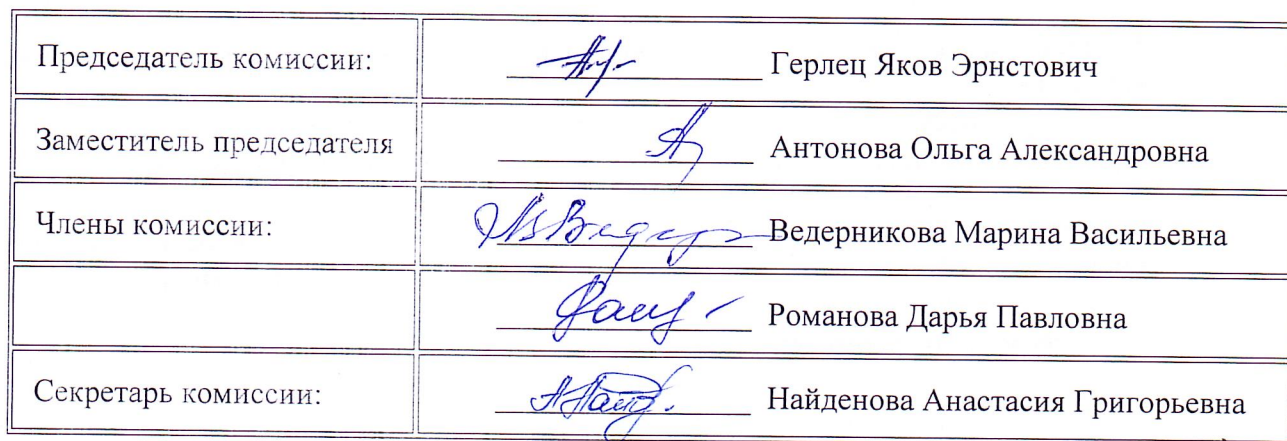 Председатель комиссии: Герлец Яков Эрнстович
Заместитель председателя Антонова Ольга Александровна
Члены комиссии: Ведерникова Марина Васильевна
Романова Дарья Павловна
Секретарь комиссии: Найденова Анастасия Григорьевна